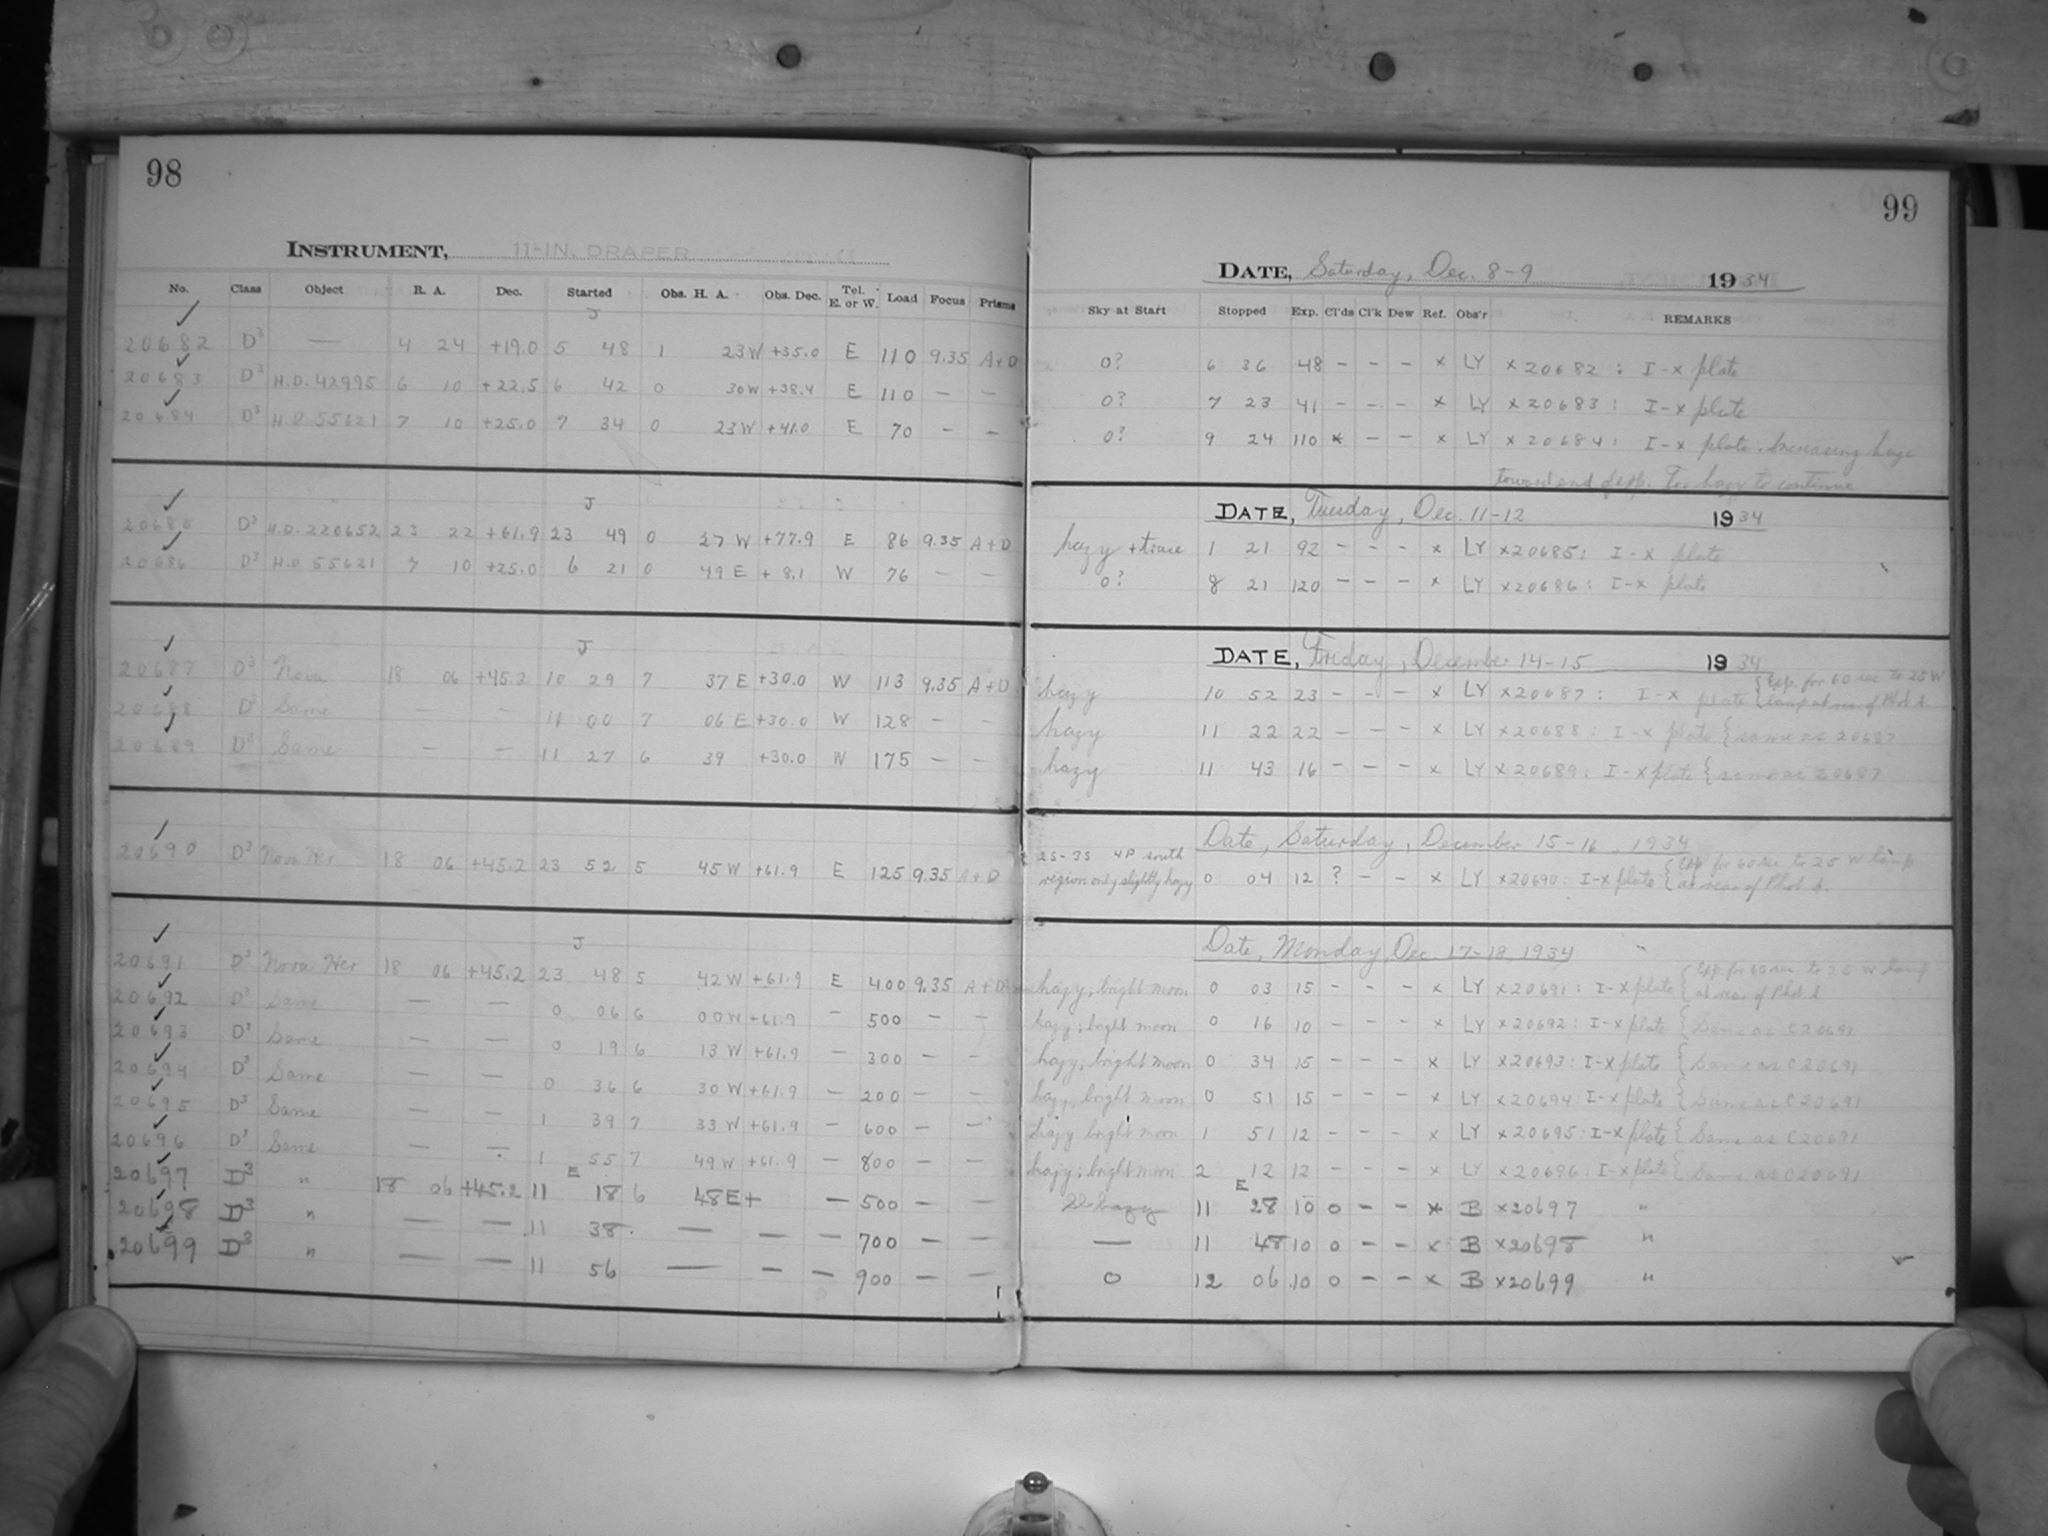 98
INSTRUMENT, 11-IN. DRAPER
No. Class Object R. A. Dec. Started Obs. H. A. Obs. Dec. Tel. E. or W. Load Focus Prisms
J
20682 D3 — 4 24 +19.0 5 48 1 23 W +35.0 E 110 9.35 A+D
20683 D3 H.D. 42995 6 10 +22.5 6 42 0 30 W +38.4 E 110 — —
20684 D3 H.D. 55621 7 10 +25.0 7 34 0 23 W +41.0 E 70 — —
J
20685 D3 H.D. 220652 23 22 +61.9 23 49 0 27 W +77.9 E 86 9.35 A+D
20686 D3 H.D. 55621 7 10 +25.0 6 21 0 49 E +8.1 W 76 — —
J
20687 D3 Nova 18 06 +45.2 10 29 7 37 E +30.0 W 113 9.35 A+D
20688 D3 Same — — 11 00 7 06 E +30.0 W 128 — —
20689 D3 Same — — 11 27 6 39 +30.0 W 175 — —
20690 D3 Nova Her 18 06 +45.2 23 52 5 45 W +61.9 E 125 9.35 A+D
J
20691 D3 Nova Her 18 06 +45.2 23 48 5 42 W +61.9 E 400 9.35 A+D
20692 D3 Same — — 0 06 6 00 W +61.9 — 500 — —
20693 D3 Same — — 0 19 6 13 W +61.9 — 300 — —
20694 D3 Same — — 0 36 6 30 W +61.9 — 200 — —
20695 D3 Same — — 1 39 7 33 W +61.9 — 600 — —
20696 D3 Same — — 1 55 7 49 W +61.9 — 800 — —
E
20697 D3 " 18 06 +45.2 11 18 6 48 E + — 500 — —
20698 D3 " — — 11 38 — — — 700 — —
20699 D3 " — — 11 56 — — — 900 — —
99
DATE, Saturday, Dec. 8-9 1934
Sky at Start Stopped Exp. Cl'ds Cl'k Dew Ref. Obs'r REMARKS
0? 6 36 48 - - - x LY x20682: I-x plate
0? 7 23 41 - - - x LY x20683: I-x plate
0? 9 24 110 x - - x LY x20684: I-x plate. Increasing haze
toward end of exp. Too hazy to continue
DATE, Tuesday, Dec. 11-12 1934
hazy + trace 1 21 92 - - - x LY x20685: I-x plate
0? 8 21 120 - - - x LY x20686: I-x plate
DATE, Friday, December 14-15 1934
hazy 10 52 23 - - - x LY x20687: I-x plate {Exp. for 60 sec to 25 W
lamp at rear of Phot A.
hazy 11 22 22 - - - x LY x20688: I-x plate {same as 20687
hazy 11 43 16 - - - x LY x20689: I-x plate {same as 20687
Date, Saturday, December 15-16, 1934
2S-3S 4P south
region only slightly hazy 0 04 12 ? - - x LY x20690: I-x plate {Exp for 60 sec to 25 W lamp
at rear of Phot A.
Date, Monday, Dec. 17-18 1934
hazy; bright moon 0 03 15 - - - x LY x20691: I-x plate {Exp for 60 sec to 25 W lamp
at rear of Phot A
hazy; bright moon 0 16 10 - - - x LY x20692: I-x plate {Same as C20691
hazy; bright moon 0 34 15 - - - x LY x20693: I-x plate {Same as C20691
hazy, bright moon 0 51 15 - - - x LY x20694: I-x plate {Same as C20691
hazy bright moon 1 51 12 - - - x LY x20695: I-x plate {Same as C20691
hazy; bright moon 2 12 12 - - - x LY x20696: I-x plate {Same as C20691
E
Sl hazy 11 28 10 0 - - x B x20697 "
— 11 48 10 0 - - x B x20698 "
0 12 06 10 0 - - x B x20699 "